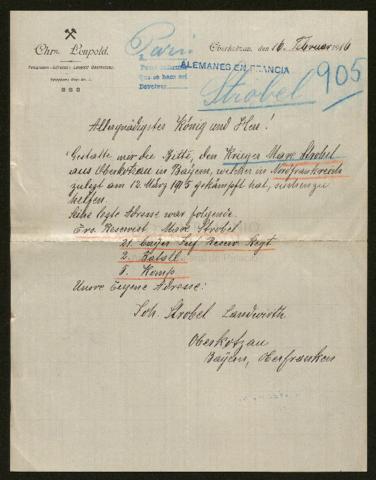 Chrn. Leopold.
Telegramm-Adresse: Leopold Oberkotzau.
Telephon Hof Nr.
Paris
Oberkotzau, den 16. Februar 1916
ALEMANES EN FRANCIA
Strobel 905
Allergnädigster König und Herr!
Gestatte mir die Bitte, den Krieger Max Strobel
aus Oberkotzau in Bayern, welcher in Nordfrankreich
zuletzt am 12. März 1915 gekämpft hat, suchen zu
helfen.
Seine letzte Adresse war folgende.
Ers. Reservist Max Strobel
21. bayer. Inf. Reserv. Regt
2. Batall.
5. Komp.
Unsre Eugene Adresse:
Joh. Strobel Landwirth
Oberkotzau
Bayern, Oberfranken